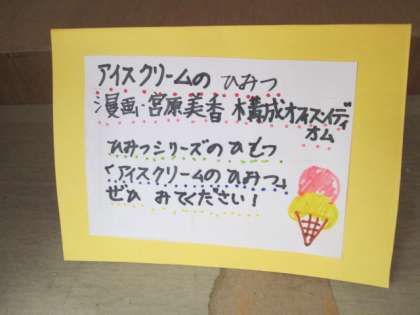 アイスクリームの ひみつ
漫画・宮原美香 構成オフィス・イディ
オム
ひみつシリーズの ひもつ
「アイスクリームのひみつ」
ぜひ みてください!